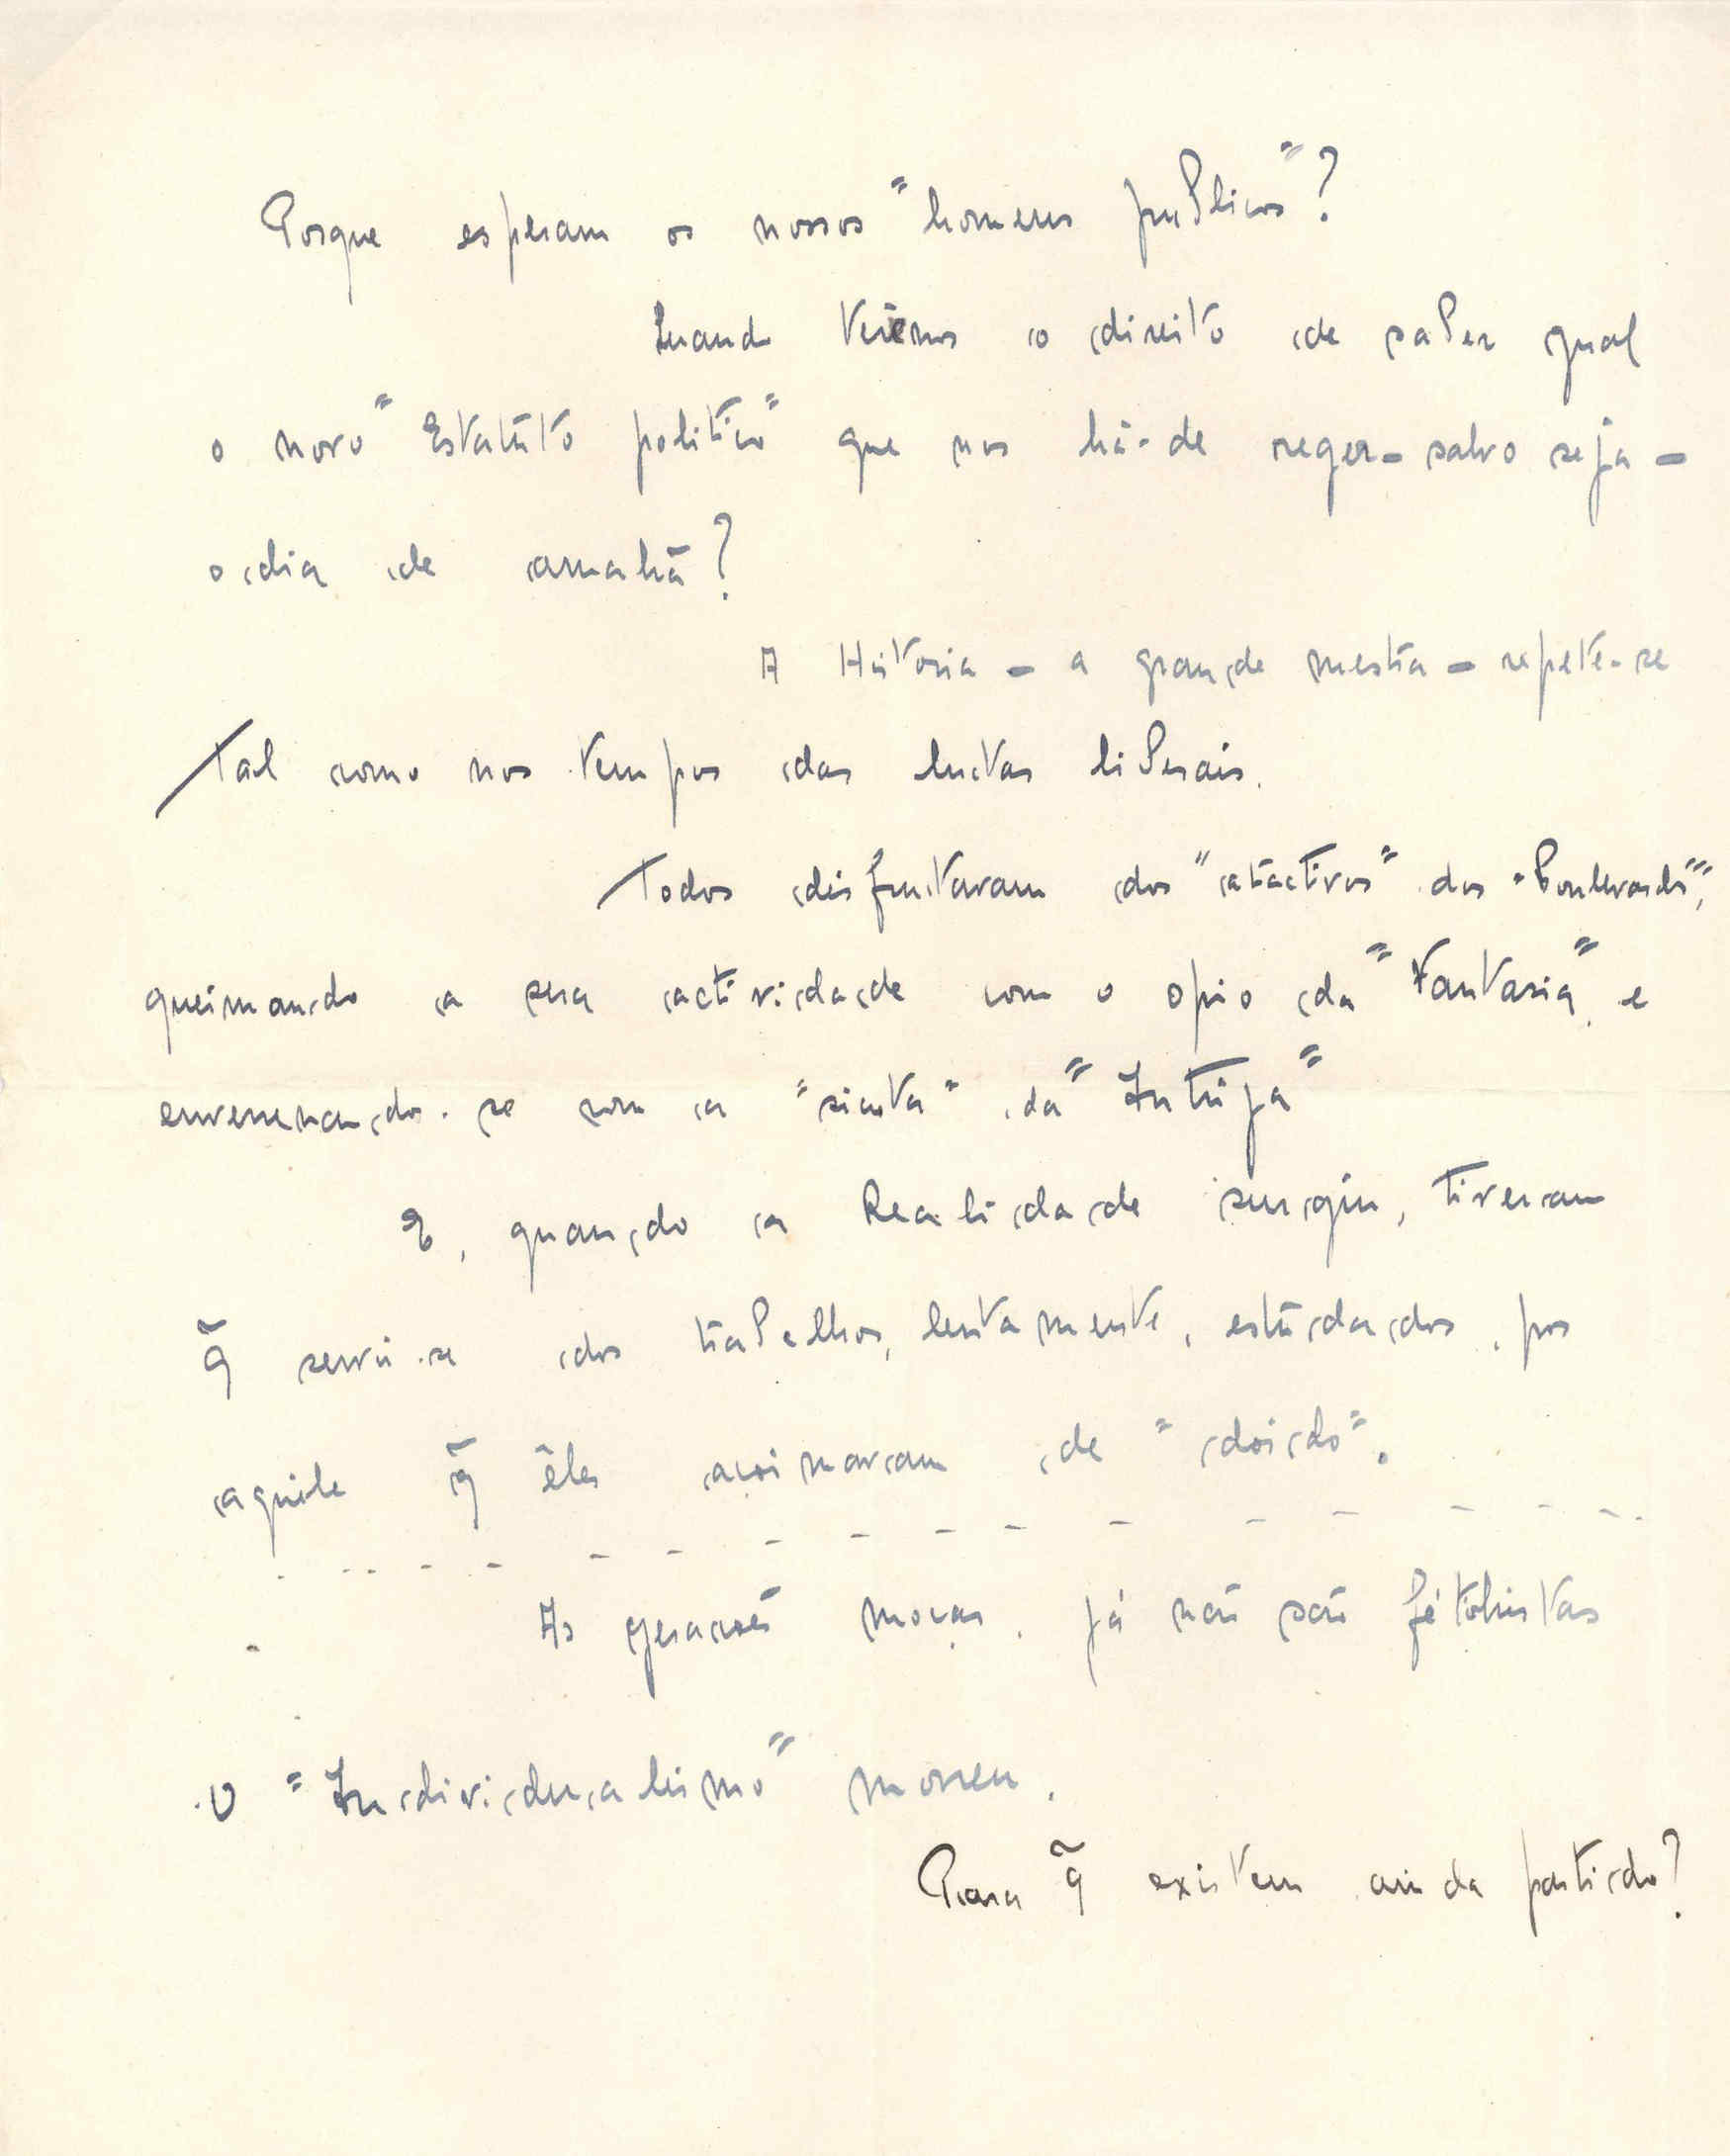 Porque esperam os nossos "homens publicos"?
Quando teremos o direito de saber qual
o novo "Estatuto politico" que nos há-de reger - salvo seja -
o dia de amahã?
A Historia - a grande mestra - repete-se
tal como nos tempos das luctas liberais.
Todos disfrutaram dos "atractivos" dos "Boulevards",
queimando a sua actividade com o opio da "Fantasia" e
envenenando-se com a "sicuta" da "Intriga"
E, quando a Realidade surgiu, tiveram
q̃ servir-se dos trabalhos, lentamente, estudados, por
aquele q̃ êles acoimaram de "doido".
As gerações moças, já não são fétichistas
O "Individualismo" morreu.
Para q̃ existem ainda partidos?